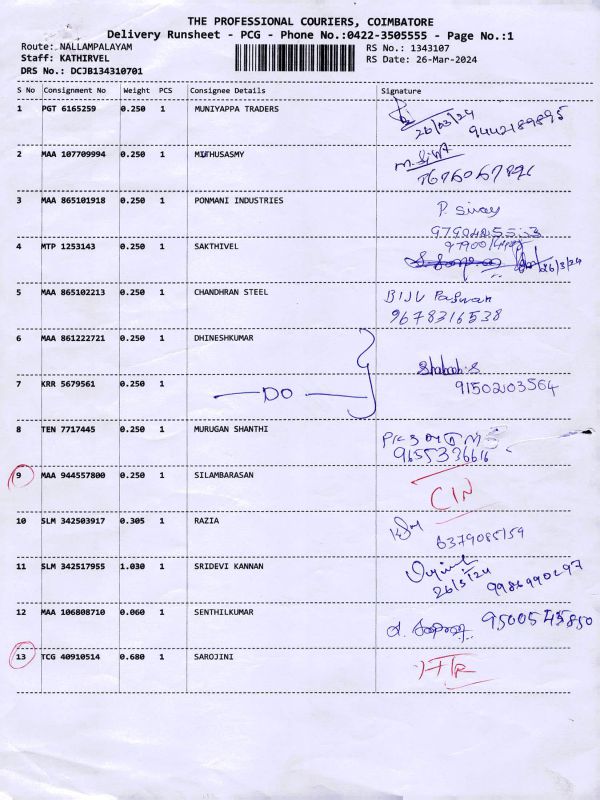 THE PROFESSIONAL COURIERS, COIMBATORE
Delivery Runsheet - PCG - Phone No.:0422-3505555 - Page No.:1
Route: NALLAMPALAYAM RS No.: 1343107
Staff: KATHIRVEL RS Date: 26-Mar-2024
DRS No.: DCJB134310701
S No Consignment No Weight PCS Consignee Details Signature
1 PGT 6165259 0.250 1 MUNIYAPPA TRADERS
26/03/24 9442189895
2 MAA 107709994 0.250 1 MUTHUSASMY
3 MAA 865101918 0.250 1 PONMANI INDUSTRIES
P. Sivay
4 MTP 1253143 0.250 1 SAKTHIVEL
26/3/24
5 MAA 865102213 0.250 1 CHANDHRAN STEEL BIJU Paswan
9678316538
6 MAA 861222721 0.250 1 DHINESHKUMAR
7 KRR 5679561 0.250 1 DO 9150203564
8 TEN 7717445 0.250 1 MURUGAN SHANTHI
9655336616
9 MAA 944557800 0.250 1 SILAMBARASAN
CIN
10 SLM 342503917 0.305 1 RAZIA
6379085159
11 SLM 342517955 1.030 1 SRIDEVI KANNAN
26/3/24 9986990297
12 MAA 106808710 0.060 1 SENTHILKUMAR
9500545850
13 TCG 40910514 0.680 1 SAROJINI